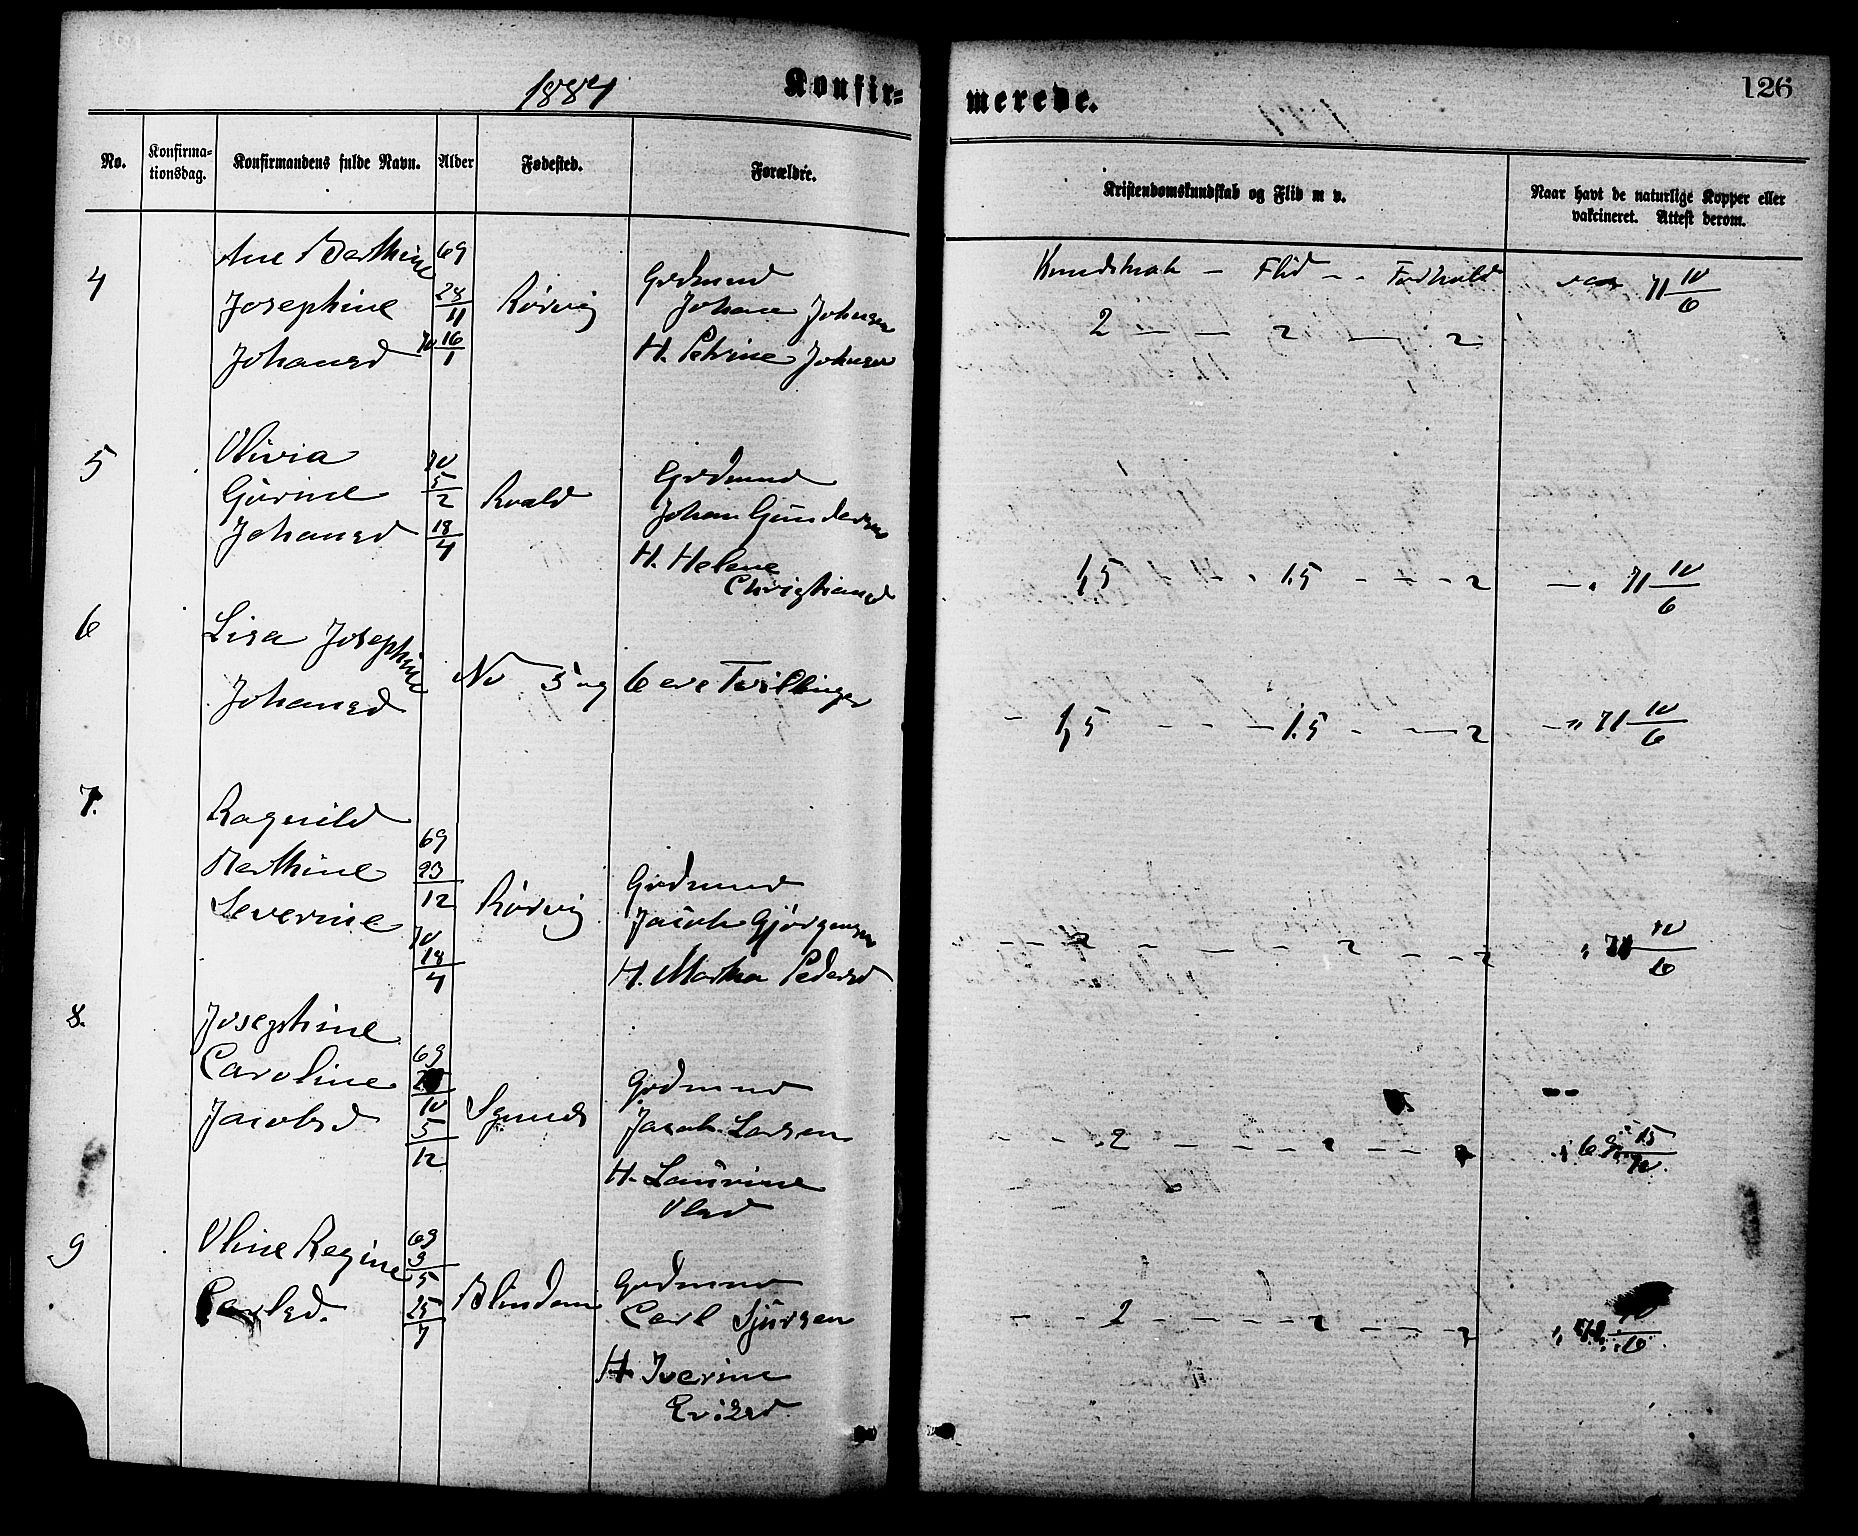 1884 Konfir=
merede. 126
No. Konfirma-tionsdag. Konfirmandens fulde Navn. Alder Fødested. Forældre.
Kristendomskundskab og Flid m v. Naar havt de naturlige Kopper eller vakcineret. Attest derom.
4
Ane Berthine
Josephine
Johansd
69
28/11
70 16/1
Rørvig
Grdmand
Johan Johnsen
H. Petrine Johnsen
Kundskab - Flid - - Forhold
2 - - 2 - 2
vac 71 10/6
5
Olivia
Gurine
Johansd
70
5/2
18/4
Roald
Grdmand
Johan Gundersen
H. Helene
Christiansd
1,5 - 1.5 - - - 2
- " 71 10/6
6
Lisa Josephine
Johansd
No 5 og 6 ere Tvillinger
- 1,5 - - - 1.5 - - 2
- " 71 10/6
7.
Ragnild
Berthine
Severine
69
23/12
70
18/4
Rørvig
Grdmand
Jacob Gjørgensen
H. Martha Pedersd
- - 2 - - - 2 - - 2
" 71 10/6
8.
Josephine
Caroline
Jacobsd
69
10
5/12
Grdmand
Jacob Larsen
H. Laurine
Olsd
- - 2 - - 2 - -
" 69 15/10
9
Oline Regine
Carlsd.
69
3/5
25/7
Blindem
Grdmand
Carl Sjursen
H. Iverine
Eriksd
- - 2 - - - 2 - - 2
10/6